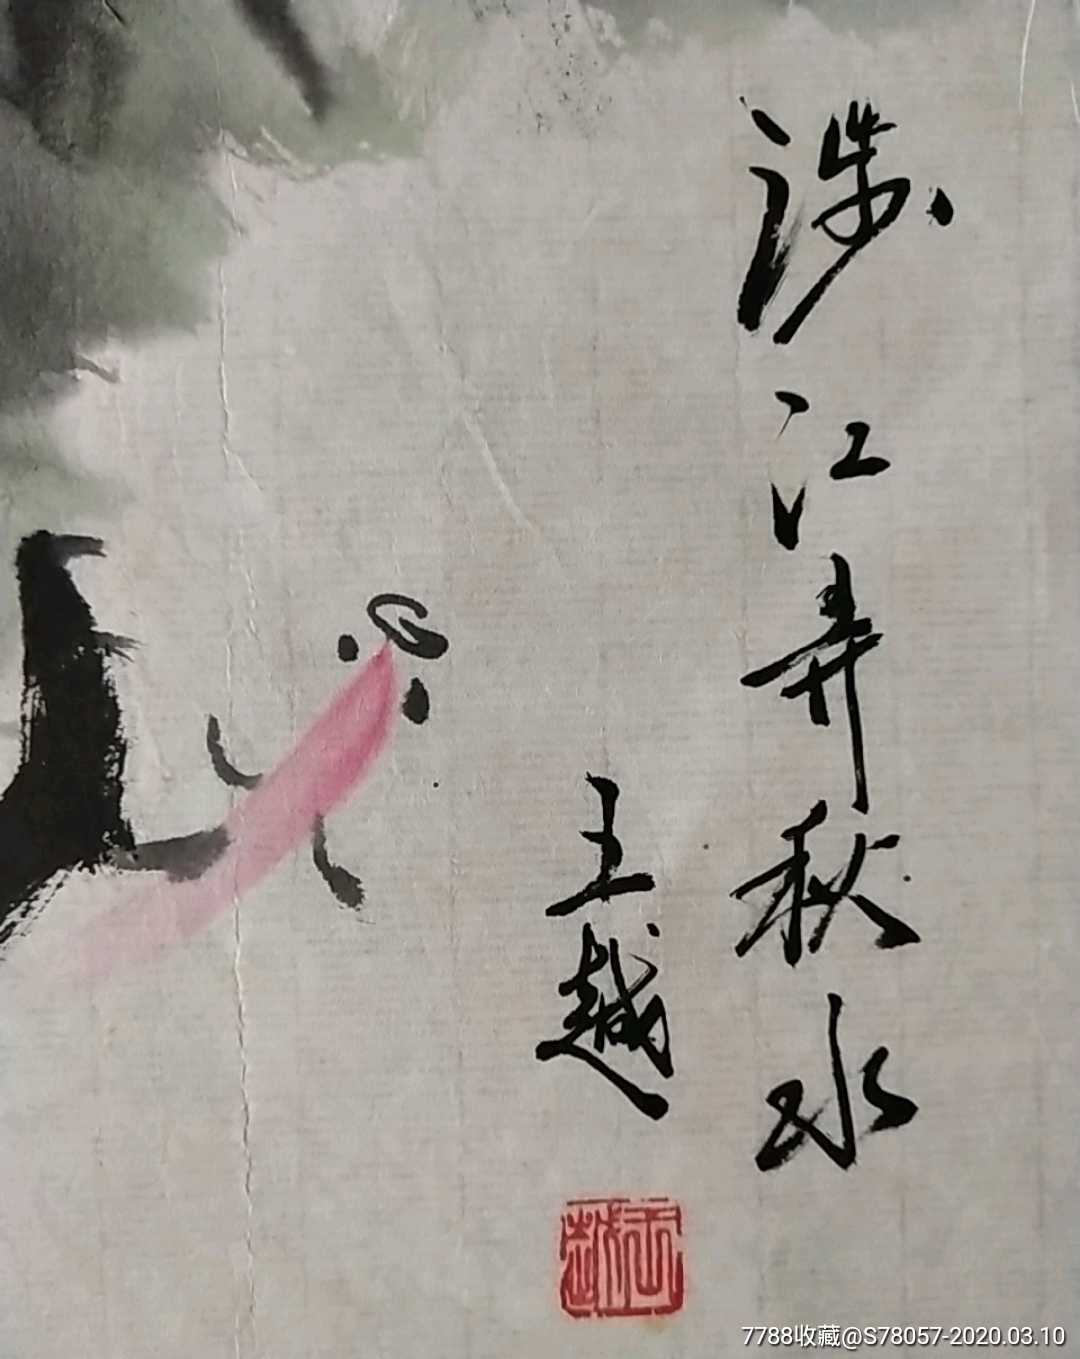 涉江弄秋水
王越
王越
7788收藏@S78057-2020.03.10